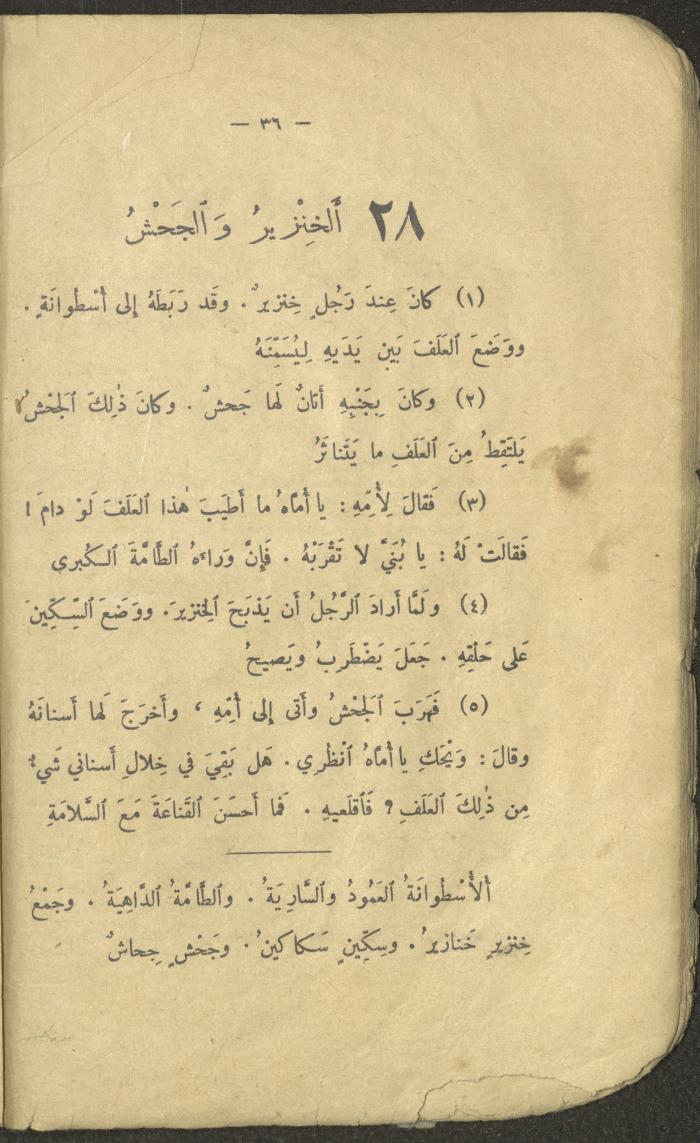 — ٣٦ —
٢٨ أَلخِنْزِيرُ وَٱلجَحْشُ
(١) كانَ عِندَ رَجُلٍ خِنزيرٌ . وقَد رَبَطَهُ إِلى أُسْطُوانَةٍ .
ووَضَعَ ٱلعَلَفَ بَينَ يَدَيهِ لِيُسَمِّنَهُ
(٢) وكانَ بِجَنْبِهِ أَتانٌ لَها جَحشٌ . وكانَ ذٰلِكَ ٱلجَحْشُ
يَلتَقِطُ مِنَ ٱلعَلَفِ ما يَتَناثَرُ
(٣) فَقالَ لِأُمِّهِ : يا أُمَّاهُ ما أَطيَبَ هٰذا ٱلعَلَفَ لَوْ دامَ !
فَقالَتْ لَهُ : يا بُنَيَّ لا تَقْرَبْهُ . فَإِنَّ وَراءَهُ ٱلطَّامَّةَ ٱلكُبرى
(٤) ولَمَّا أَرادَ ٱلرَّجُلُ أَن يَذبَحَ ٱلخِنزيرَ . ووَضَعَ ٱلسِّكِّينَ
عَلى حَلْقِهِ . جَعَلَ يَضْطَرِبُ ويَصيحُ
(٥) فَهَرَبَ ٱلجَحْشُ وأَتى إِلى أُمِّهِ ، وأَخرَجَ لَها أَسنانَهُ
وقالَ : وَيْحَكِ يا أُمَّاهُ ٱنْظُرِي . هَل بَقِيَ في خِلالِ أَسناني شَيءٌ
مِن ذٰلِكَ ٱلعَلَفِ ? فَٱقلَعيهِ . فَما أَحسَنَ ٱلقَناعَةَ مَعَ ٱلسَّلامَةِ
أَلأُسْطُوانَةُ ٱلعَمُودُ وٱلسَّارِيَةُ . وٱلطَّامَّةُ ٱلدَّاهِيَةُ . وجَمْعُ
خِنزيرٍ خَنازيرُ . وسِكِّينٍ سَكاكينُ . وجَحْشٍ جِحاشٌ